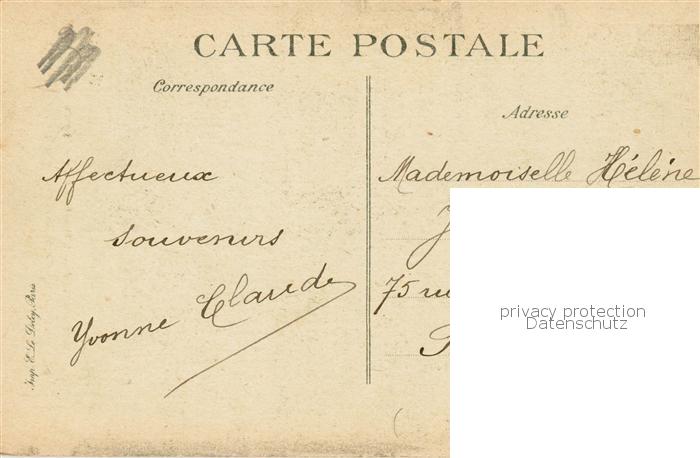 CARTE POSTALE
Correspondance
Adresse
Affectueux
souvenirs
Yvonne Claude
Mademoiselle Hélène
75 ru
privacy protection
Datenschutz
Imp. E. Le Deley, Paris